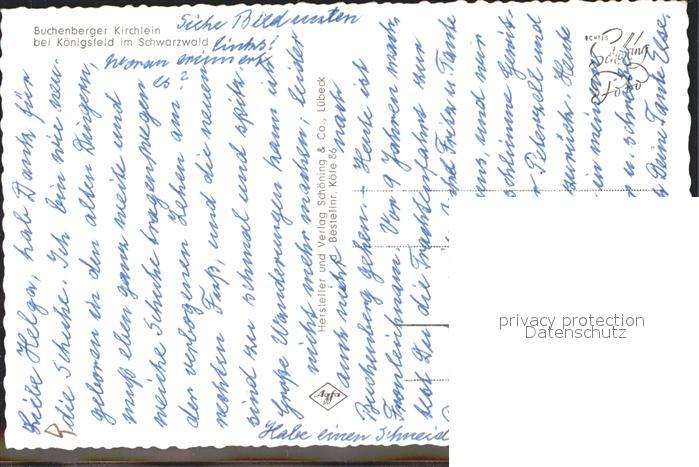 Buchenberger Kirchlein
bei Königsfeld im Schwarzwald
Siehe Bild unten
links!
woran erinnert
es?
ECHTES
Schöning
Foto
Liebe Helga, hab Dank für
die Schuhe. Ich bin wie neu-
geboren in den alten Dingern,
muß eben ganz weite und
weiche Schuhe tragen wegen
der verbogenen Zehen am
rechten Fuß, und die neuen
sind zu schmal und spitz.
Große Wanderungen kann ich
nicht mehr machen, leider
auch nicht nach
Buchenberg gehen. – Heute ist
Fronleichnam. Vor 9 Jahren
bist Du die Traktorfahrt
und Tante
uns, und
schlimme
Peterzell und
zurück. Heute
in
u.
Dein Tante Else.
Habe einen Schneid
Hersteller und Verlag Schöning & Co., Lübeck
Bestellnr. Köfe 86
Agfa
privacy protection
Datenschutz